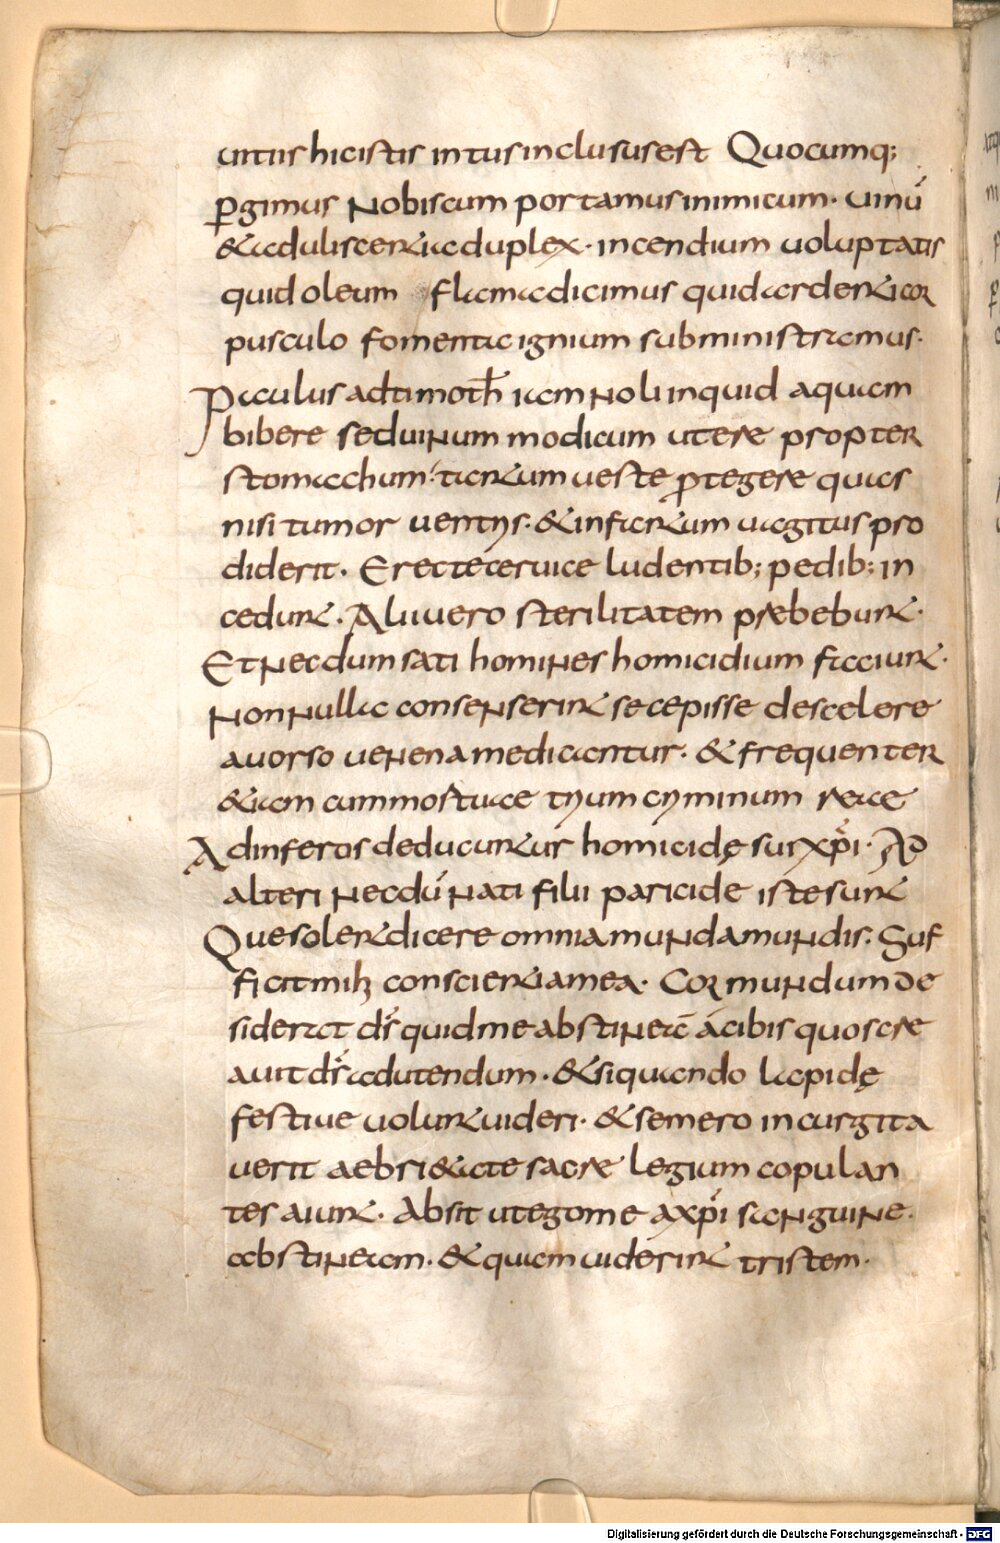 uitiis hicistis intus inclususest Quocumq;
p̱gimus Nobiscum portamus inimicum. uinū
&aduliscentiaduplex. incendium uoluptatis
quid oleum flamadicimus quid ardenticor
pusculo fomenta ignium subministramus.
Paulus adtimoth iam Noli inquid aquam
bibere sed uiNum modicum utere propter
stomachum. tantum ueste ptegere quias
nisi tumor uentris. &infantum uagitus pro
diderit. Erectaceruice ludentib; pedib; in
cedunt. Alii uero sterilitatem prębebunt.
Et Necdum sati homiNes homicidium faciunt.
NonNulla conseNserint se cepisse descelere
auorso ueNena medicantur. & frequenter
&iam cummostuae tyum cyminum reae
Adinferos deducuntur homicidę sui xp̄i. Ad
alteri Necdū Nati filii paricidę iste sunt
Que solent dicere omnia muNda muNdis. Suf
ficit mihi conscientiamea. Cor muNdum de
siderat d̄s quid me abstiNeā ácibis quos cre
auit d̄s adutendum. &siquando lapidę
festiue uolunt uideri. &semero incurgita
uerit aebri&ate sacre legium copulan
tes aiunt. Absit utegome axp̄i saNguiNe.
abstiNeam. & quam uiderint tristem.
Digitalisierung gefördert durch die Deutsche Forschungsgemeinschaft - DFG